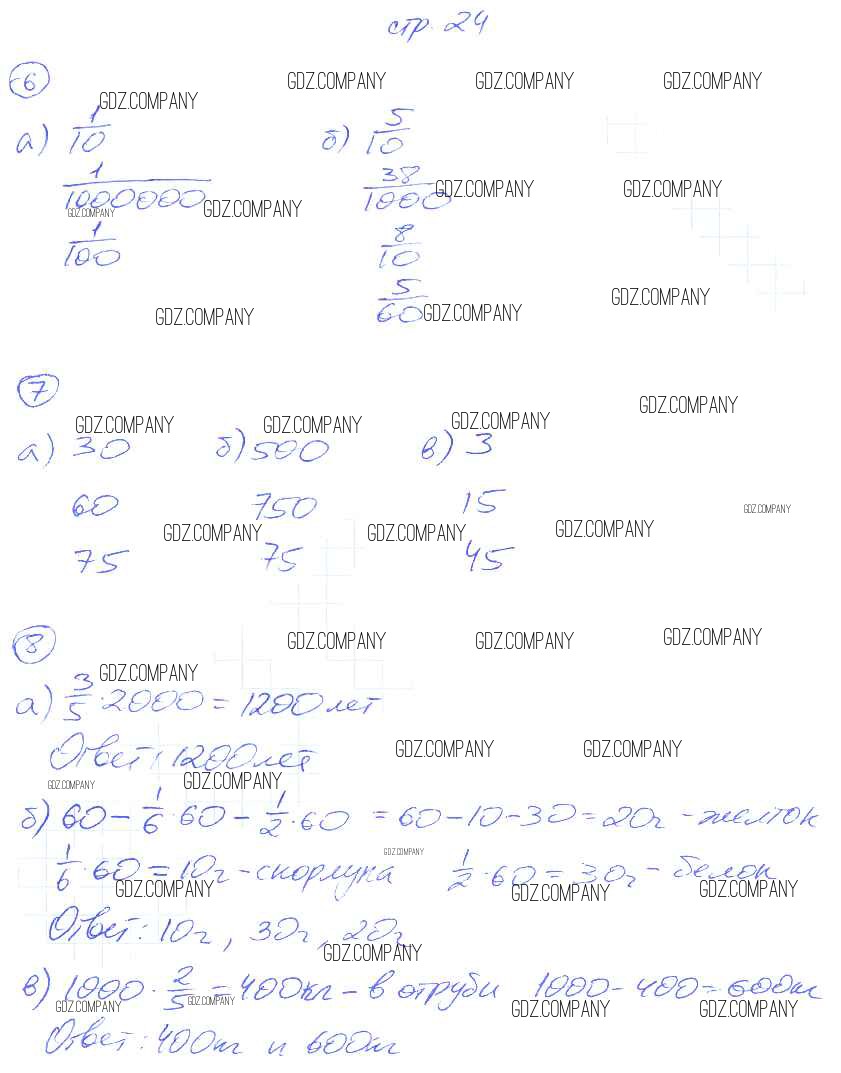 стр. 24
6
GDZ.COMPANY GDZ.COMPANY GDZ.COMPANY
GDZ.COMPANY
а) 1/10 б) 5/10
1/1000000 38/1000
GDZ.COMPANY GDZ.COMPANY
GDZ.COMPANY GDZ.COMPANY
1/100 8/10
5/60
GDZ.COMPANY GDZ.COMPANY GDZ.COMPANY
7
GDZ.COMPANY
GDZ.COMPANY GDZ.COMPANY GDZ.COMPANY
а) 30 б) 500 в) 3
60 750 15
GDZ.COMPANY
GDZ.COMPANY GDZ.COMPANY GDZ.COMPANY
75 75 45
8
GDZ.COMPANY GDZ.COMPANY GDZ.COMPANY
GDZ.COMPANY
а) 3/5 · 2000 = 1200 лет
Ответ: 1200 лет
GDZ.COMPANY GDZ.COMPANY
GDZ.COMPANY GDZ.COMPANY
б) 60 – 1/6 · 60 – 1/2 · 60 = 60 – 10 – 30 = 20г – желток
GDZ.COMPANY
1/6 · 60 = 10г – скорлупа 1/2 · 60 = 30г – белок
GDZ.COMPANY GDZ.COMPANY GDZ.COMPANY
Ответ: 10г, 30г, 20г
GDZ.COMPANY
в) 1000 · 2/5 = 400кг – в отруби 1000 – 400 = 600кг
GDZ.COMPANY GDZ.COMPANY GDZ.COMPANY GDZ.COMPANY
Ответ: 400кг и 600кг